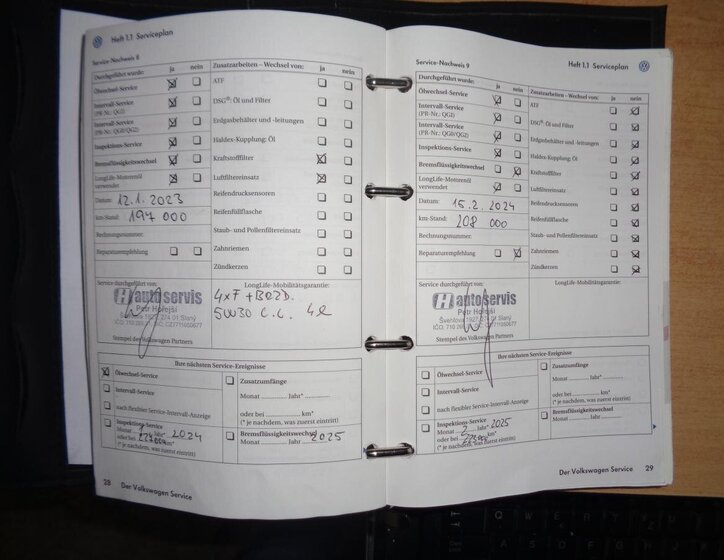 Heft 1.1 Serviceplan
Service-Nachweis 8
Durchgeführt wurde: ja nein
Ölwechsel-Service
Intervall-Service
(PR-Nr.: QG1)
Intervall-Service
(PR-Nr.: QG0/QG2)
Inspektions-Service
Bremsflüssigkeitswechsel
LongLife-Motorenöl
verwendet
Datum: 12.1.2023
km-Stand: 197 000
Rechnungsnummer:
Reparaturempfehlung
Zusatzarbeiten – Wechsel von: ja nein
ATF
DSG®: Öl und Filter
Erdgasbehälter und -leitungen
Haldex-Kupplung: Öl
Kraftstofffilter
Luftfiltereinsatz
Reifendrucksensoren
Reifenfüllflasche
Staub- und Pollenfiltereinsatz
Zahnriemen
Zündkerzen
Service durchgeführt von:
H autoservis
Petr Hořejší
Švenlova 1827, 274 01 Slaný
Stempel des Volkswagen Partners
LongLife-Mobilitätsgarantie:
5W30
Ihre nächsten Service-Ereignisse
Ölwechsel-Service
Intervall-Service
nach flexibler Service-Intervall-Anzeige
Inspektions-Service
Monat Jahr* 2024
oder bei km*
(* je nachdem, was zuerst eintritt)
Zusatzumfänge
Monat Jahr*
oder bei km*
(* je nachdem, was zuerst eintritt)
Bremsflüssigkeitswechsel
Monat Jahr 2025
28 Der Volkswagen Service
Heft 1.1 Serviceplan
Service-Nachweis 9
Durchgeführt wurde: ja nein
Ölwechsel-Service
Intervall-Service
(PR-Nr.: QG1)
Intervall-Service
(PR-Nr.: QG0/QG2)
Inspektions-Service
Bremsflüssigkeitswechsel
LongLife-Motorenöl
verwendet
Datum: 15.2.2024
km-Stand: 208 000
Rechnungsnummer:
Reparaturempfehlung
Zusatzarbeiten – Wechsel von: ja nein
ATF
DSG®: Öl und Filter
Erdgasbehälter und -leitungen
Haldex-Kupplung: Öl
Kraftstofffilter
Luftfiltereinsatz
Reifendrucksensoren
Reifenfüllflasche
Staub- und Pollenfiltereinsatz
Zahnriemen
Zündkerzen
Service durchgeführt von:
H autoservis
Petr Hořejší
Švenlova 1827, 274 01 Slaný
Stempel des Volkswagen Partners
LongLife-Mobilitätsgarantie:
Ihre nächsten Service-Ereignisse
Ölwechsel-Service
Intervall-Service
nach flexibler Service-Intervall-Anzeige
Inspektions-Service
Monat 2 Jahr* 2025
oder bei km*
(* je nachdem, was zuerst eintritt)
Zusatzumfänge
Monat Jahr*
oder bei km*
(* je nachdem, was zuerst eintritt)
Bremsflüssigkeitswechsel
Monat Jahr
Der Volkswagen Service 29